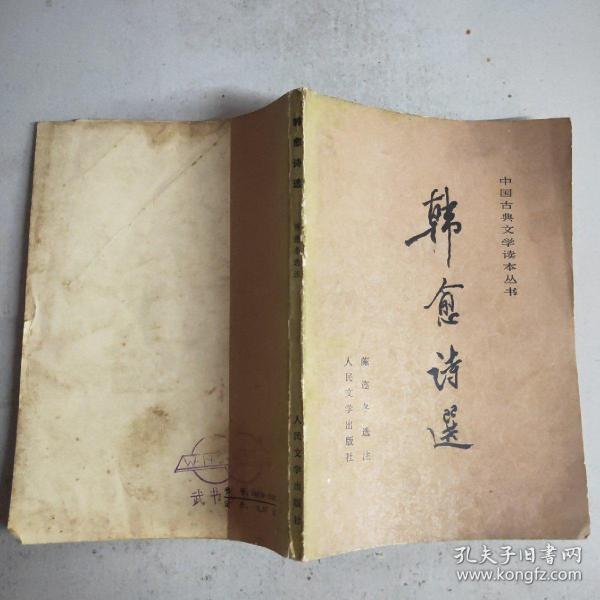 中国古典文学读本丛书
韩愈诗選
陈迩冬选注
人民文学出版社
韩愈诗选
人民文学出版社
武书
孔夫子旧书网
www.kongfz.com